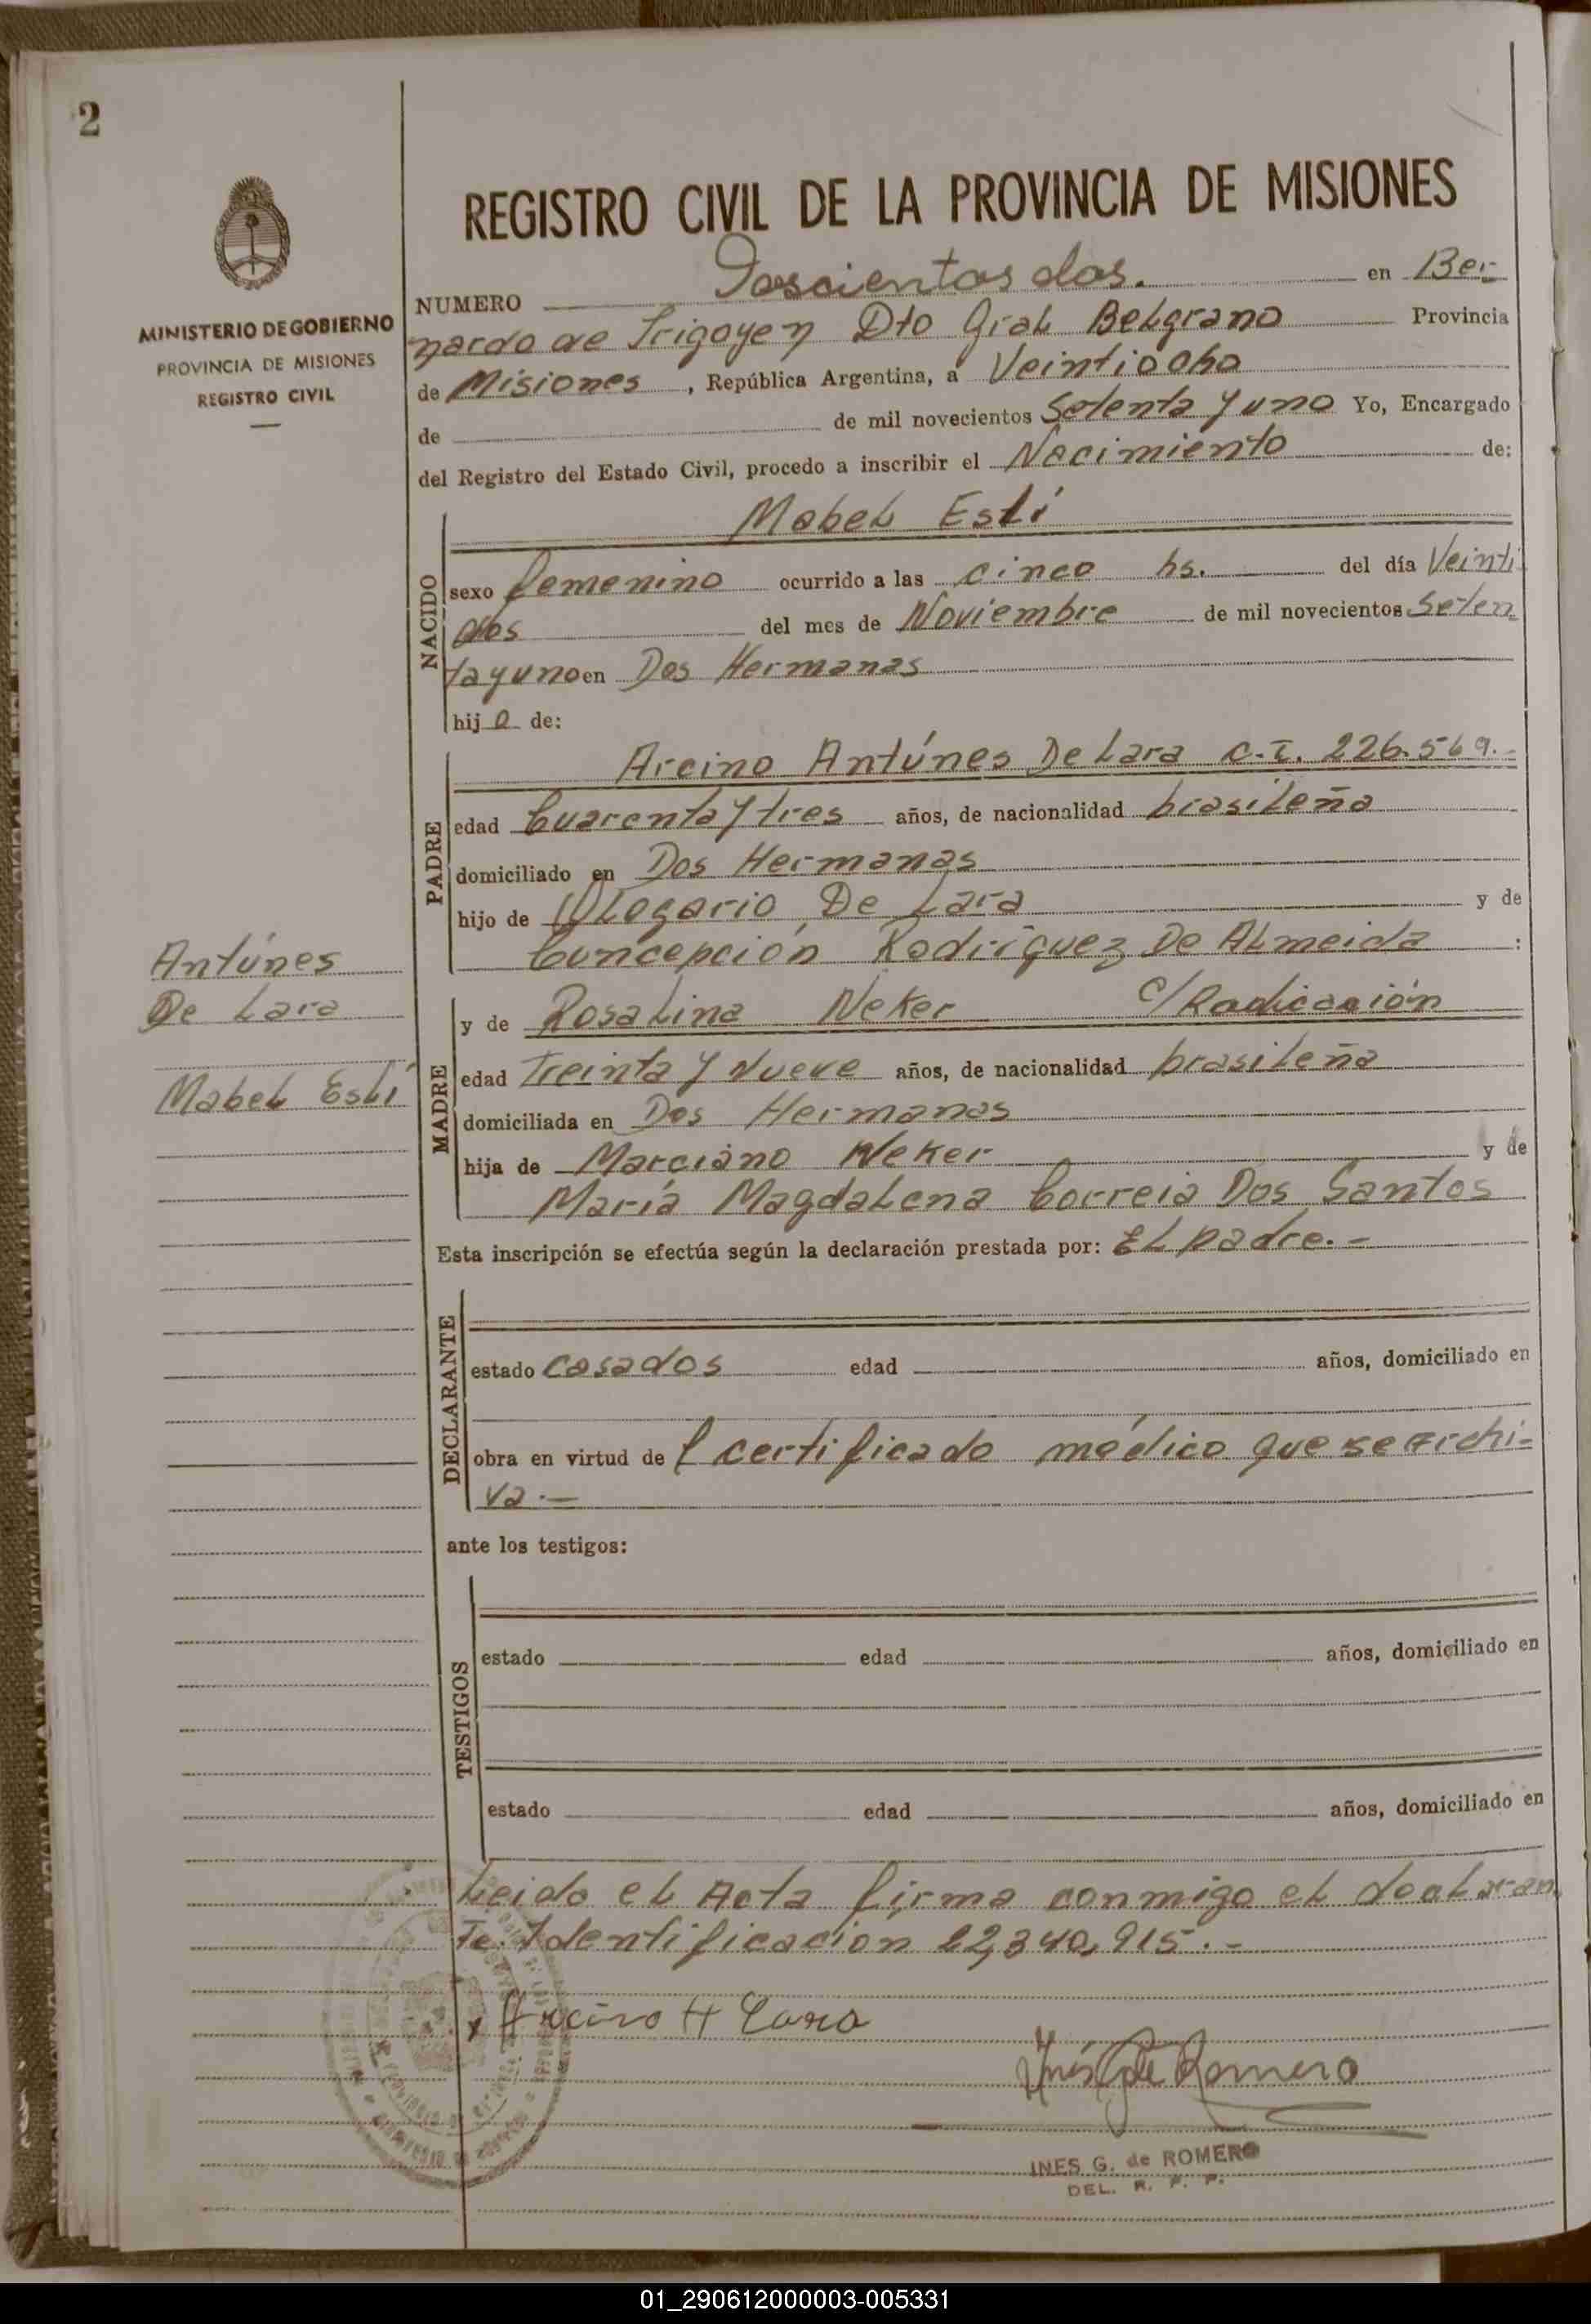 2
MINISTERIO DE GOBIERNO
PROVINCIA DE MISIONES
REGISTRO CIVIL
REGISTRO CIVIL DE LA PROVINCIA DE MISIONES
NUMERO Doscientos dos. en Ber-
nardo de Irigoyen Dto Gral Belgrano Provincia
de Misiones, República Argentina, a Veintiocho
de de mil novecientos Setenta y uno Yo, Encargado
del Registro del Estado Civil, procedo a inscribir el Nacimiento de:
NACIDO
Mabel Eslí
sexo femenino ocurrido a las cinco hs. del día Veinti
dos del mes de Noviembre de mil novecientos Seten
ta y uno en Dos Hermanas
hija de:
PADRE
Arcino Antúnes De Lara C.I. 226.569.-
edad Cuarenta y tres años, de nacionalidad brasileña
domiciliado en Dos Hermanas
hijo de Olegario De Lara y de
Concepción Rodríguez De Almeida :
Antúnes
De Lara
Mabel Eslí
MADRE
y de Rosalina Neker c/Radicación
edad Treinta y Nueve años, de nacionalidad brasileña
domiciliada en Dos Hermanas
hija de Marciano Neker y de
María Magdalena Correia Dos Santos
Esta inscripción se efectúa según la declaración prestada por: El padre.-
DECLARANTE
estado casados edad años, domiciliado en
obra en virtud del certificado médico que se archi-
va.-
ante los testigos:
TESTIGOS
estado edad años, domiciliado en
estado edad años, domiciliado en
Leida el Acta firma conmigo el declaran
te. Identificación 22,340,915.-
x Arcino A Lara
Inés G de Romero
INES G. de ROMERO
DEL. R. P. P.
01_290612000003-005331